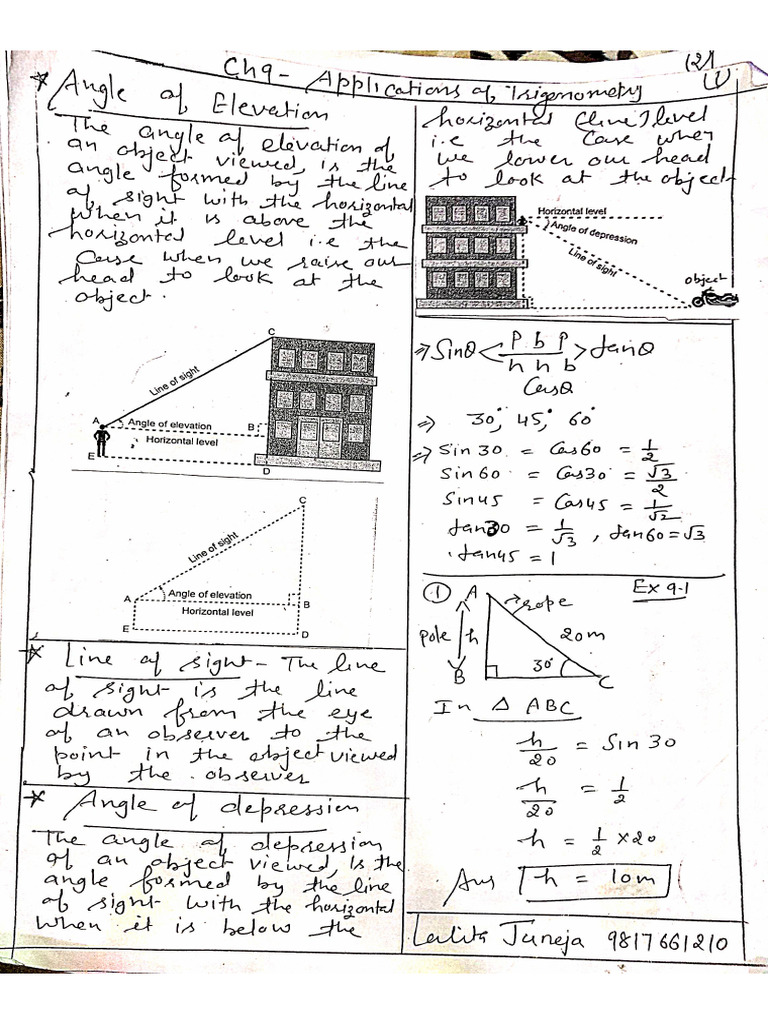 Ch9 - Applications of Trigonometry
(1)
* Angle of Elevation
The angle of elevation of
an object viewed, is the
angle formed by the line
of sight with the horizontal
when it is above the
horizontal level i.e the
Case when we raise our
head to look at the
object.
C
Line of sight
A
Angle of elevation
B
Horizontal level
E
D
C
Line of sight
A
Angle of elevation
B
Horizontal level
E
D
* Line of sight - The line
of sight is the line
drawn from the eye
of an observer to the
point in the object viewed
by the observer
* Angle of depression
The angle of depression
of an object viewed, is the
angle formed by the line
of sight with the horizontal
when it is below the
horizontal (line) level
i.e the Case when
we lower our head
to look at the object
Horizontal level
Angle of depression
Line of sight
object
⇒ Sinθ < P b P > tanθ
h h b
Cosθ
⇒ 30°, 45°, 60°
⇒ Sin 30 = Cos60 = 1/2
Sin 60 = Cos30 = √3/2
Sin45 = Cos45 = 1/√2
tan30 = 1/√3 , tan60 = √3
tan45 = 1
Ex 9.1
① A
rope
pole h
20m
30°
B
C
In △ ABC
h/20 = Sin 30
h/20 = 1/2
h = 1/2 × 20
Ans h = 10m
Lalita Juneja 9817661210